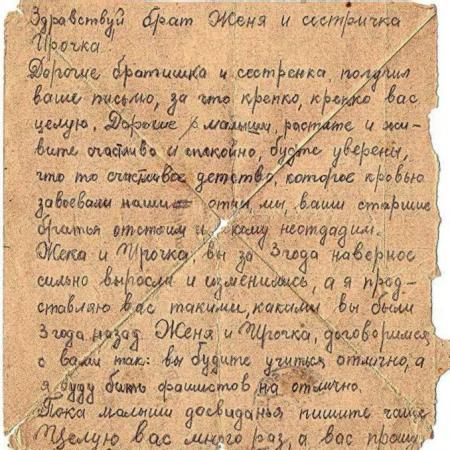 Здравствуй брат Женя и сестричка
Ирочка!
Дорогие братишка и сестренка, получил
ваше письмо, за что крепко, крепко вас
целую. Дорогие малыши, растите и жи-
вите счастливо и спокойно, будте уверены,
что то счастливое детство, которое кровью
завоевали наши отцы, мы, ваши старшие
братья отстоим и никому неотдадим.
Жека и Ирочка, вы за 3 года навернос
сильно выросли и изменились, а я пред-
ставляю вас такими, какими вы были
3 года назад. Женя и Ирочка, договоримся
с вами так: вы будите учиться отлично, а
я буду бить фашистов на отлично.
Пока малыши досвиданья пишите чаще
Целую вас много раз, а вас прошу